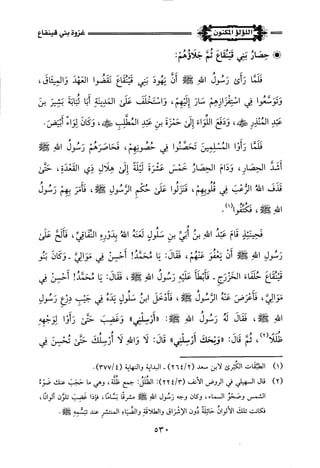 غزوة بني قينقاع
اللؤلؤ المكنون
حِصَارُ بَنِي قَيْنُقَاعَ ثُمَّ جَلَاؤُهُمْ:
فَلَمَّا رَأَى رَسُولُ اللهِ ﷺ أَنَّ يَهُودَ بَنِي قَيْنُقَاعَ نَقَضُوا العَهْدَ وَالمِيثَاقَ،
وَتَوَسَّعُوا فِي اسْتِفْزَازِهِمْ سَارَ إِلَيْهِمْ، وَاسْتَخْلَفَ عَلَى المَدِينَةِ أَبَا لُبَابَةَ بَشِيرَ بنَ
عَبْدِ المُنْذِرِ ﷺ، وَدَفَعَ اللِّوَاءَ إِلَى حَمْزَةَ بنِ عَبْدِ المُطَّلِبِ ﷺ، وَكَانَ لِوَاءً أَبْيَضَ.
فَلَمَّا رَأَوُا المُسْلِمِينَ تَحَصَّنُوا فِي حُصُونِهِمْ، فَحَاصَرَهُمْ رَسُولُ اللهِ ﷺ
أَشَدَّ الحِصَارِ، وَدَامَ الحِصَارُ خَمْسَ عَشْرَةَ لَيْلَةً إِلَى هِلَالِ ذِي القَعْدَةِ، حَتَّى
قَذَفَ اللهُ الرُّعْبَ فِي قُلُوبِهِمْ، فَنَزَلُوا عَلَى حُكْمِ الرَّسُولِ ﷺ، فَأَمَرَ بِهِمْ رَسُولُ
اللهِ ﷺ، فَكُتِّفُوا(١).
فَحِينَئِذٍ قَامَ عَبْدُ اللهِ بنُ أُبَيِّ بنِ سَلُولٍ لَعَنَهُ اللهُ بِدَوْرِهِ النِّفَاقِيِّ، فَأَلَحَّ عَلَى
رَسُولِ اللهِ ﷺ أَنْ يَعْفُوَ عَنْهُمْ، فَقَالَ: يَا مُحَمَّدُ! أَحْسِنْ فِي مَوَالِيَّ - وَكَانَ بَنُو
قَيْنُقَاعَ حُلَفَاءَ الخَزْرَجِ - فَأَبْطَأَ عَلَيْهِ رَسُولُ اللهِ ﷺ، فَقَالَ: يَا مُحَمَّدُ! أَحْسِنْ فِي
مَوَالِيَّ، فَأَعْرَضَ عَنْهُ الرَّسُولُ ﷺ، فَأَدْخَلَ ابنُ سَلُولٍ يَدَهُ فِي جَيْبِ دِرْعِ رَسُولِ
اللهِ ﷺ، فَقَالَ لَهُ رَسُولُ اللهِ ﷺ: «أَرْسِلْنِي» وَغَضِبَ حَتَّى رَأَوْا لِوَجْهِهِ
ظُلَلًا(٢)، ثُمَّ قَالَ: «وَيْحَكَ أَرْسِلْنِي» قَالَ: لَا وَاللهِ لَا أُرْسِلُكَ حَتَّى تُحْسِنَ فِي
(١) الطبقات الكبرى لابن سعد (٢٦٤/٢) - البداية والنهاية (٣٧٧/٤).
(٢) قال السهيلي في الروض الأنف (٢٢٤/٣): الظُّلَلُ: جمع ظُلَّة، وهي ما حَجَبَ عنك ضَوْءَ
الشمس وصَحْوَ السماء، وكان وجه رسول الله ﷺ مشرقًا بسَّامًا، فإذا غَضِبَ تلوَّن ألوانًا،
فكانت تلك الألوانُ حائلةً دون الإشراق والطلاقة والضياء المنتشر عند تبسُّمه ﷺ.
٥٣٠